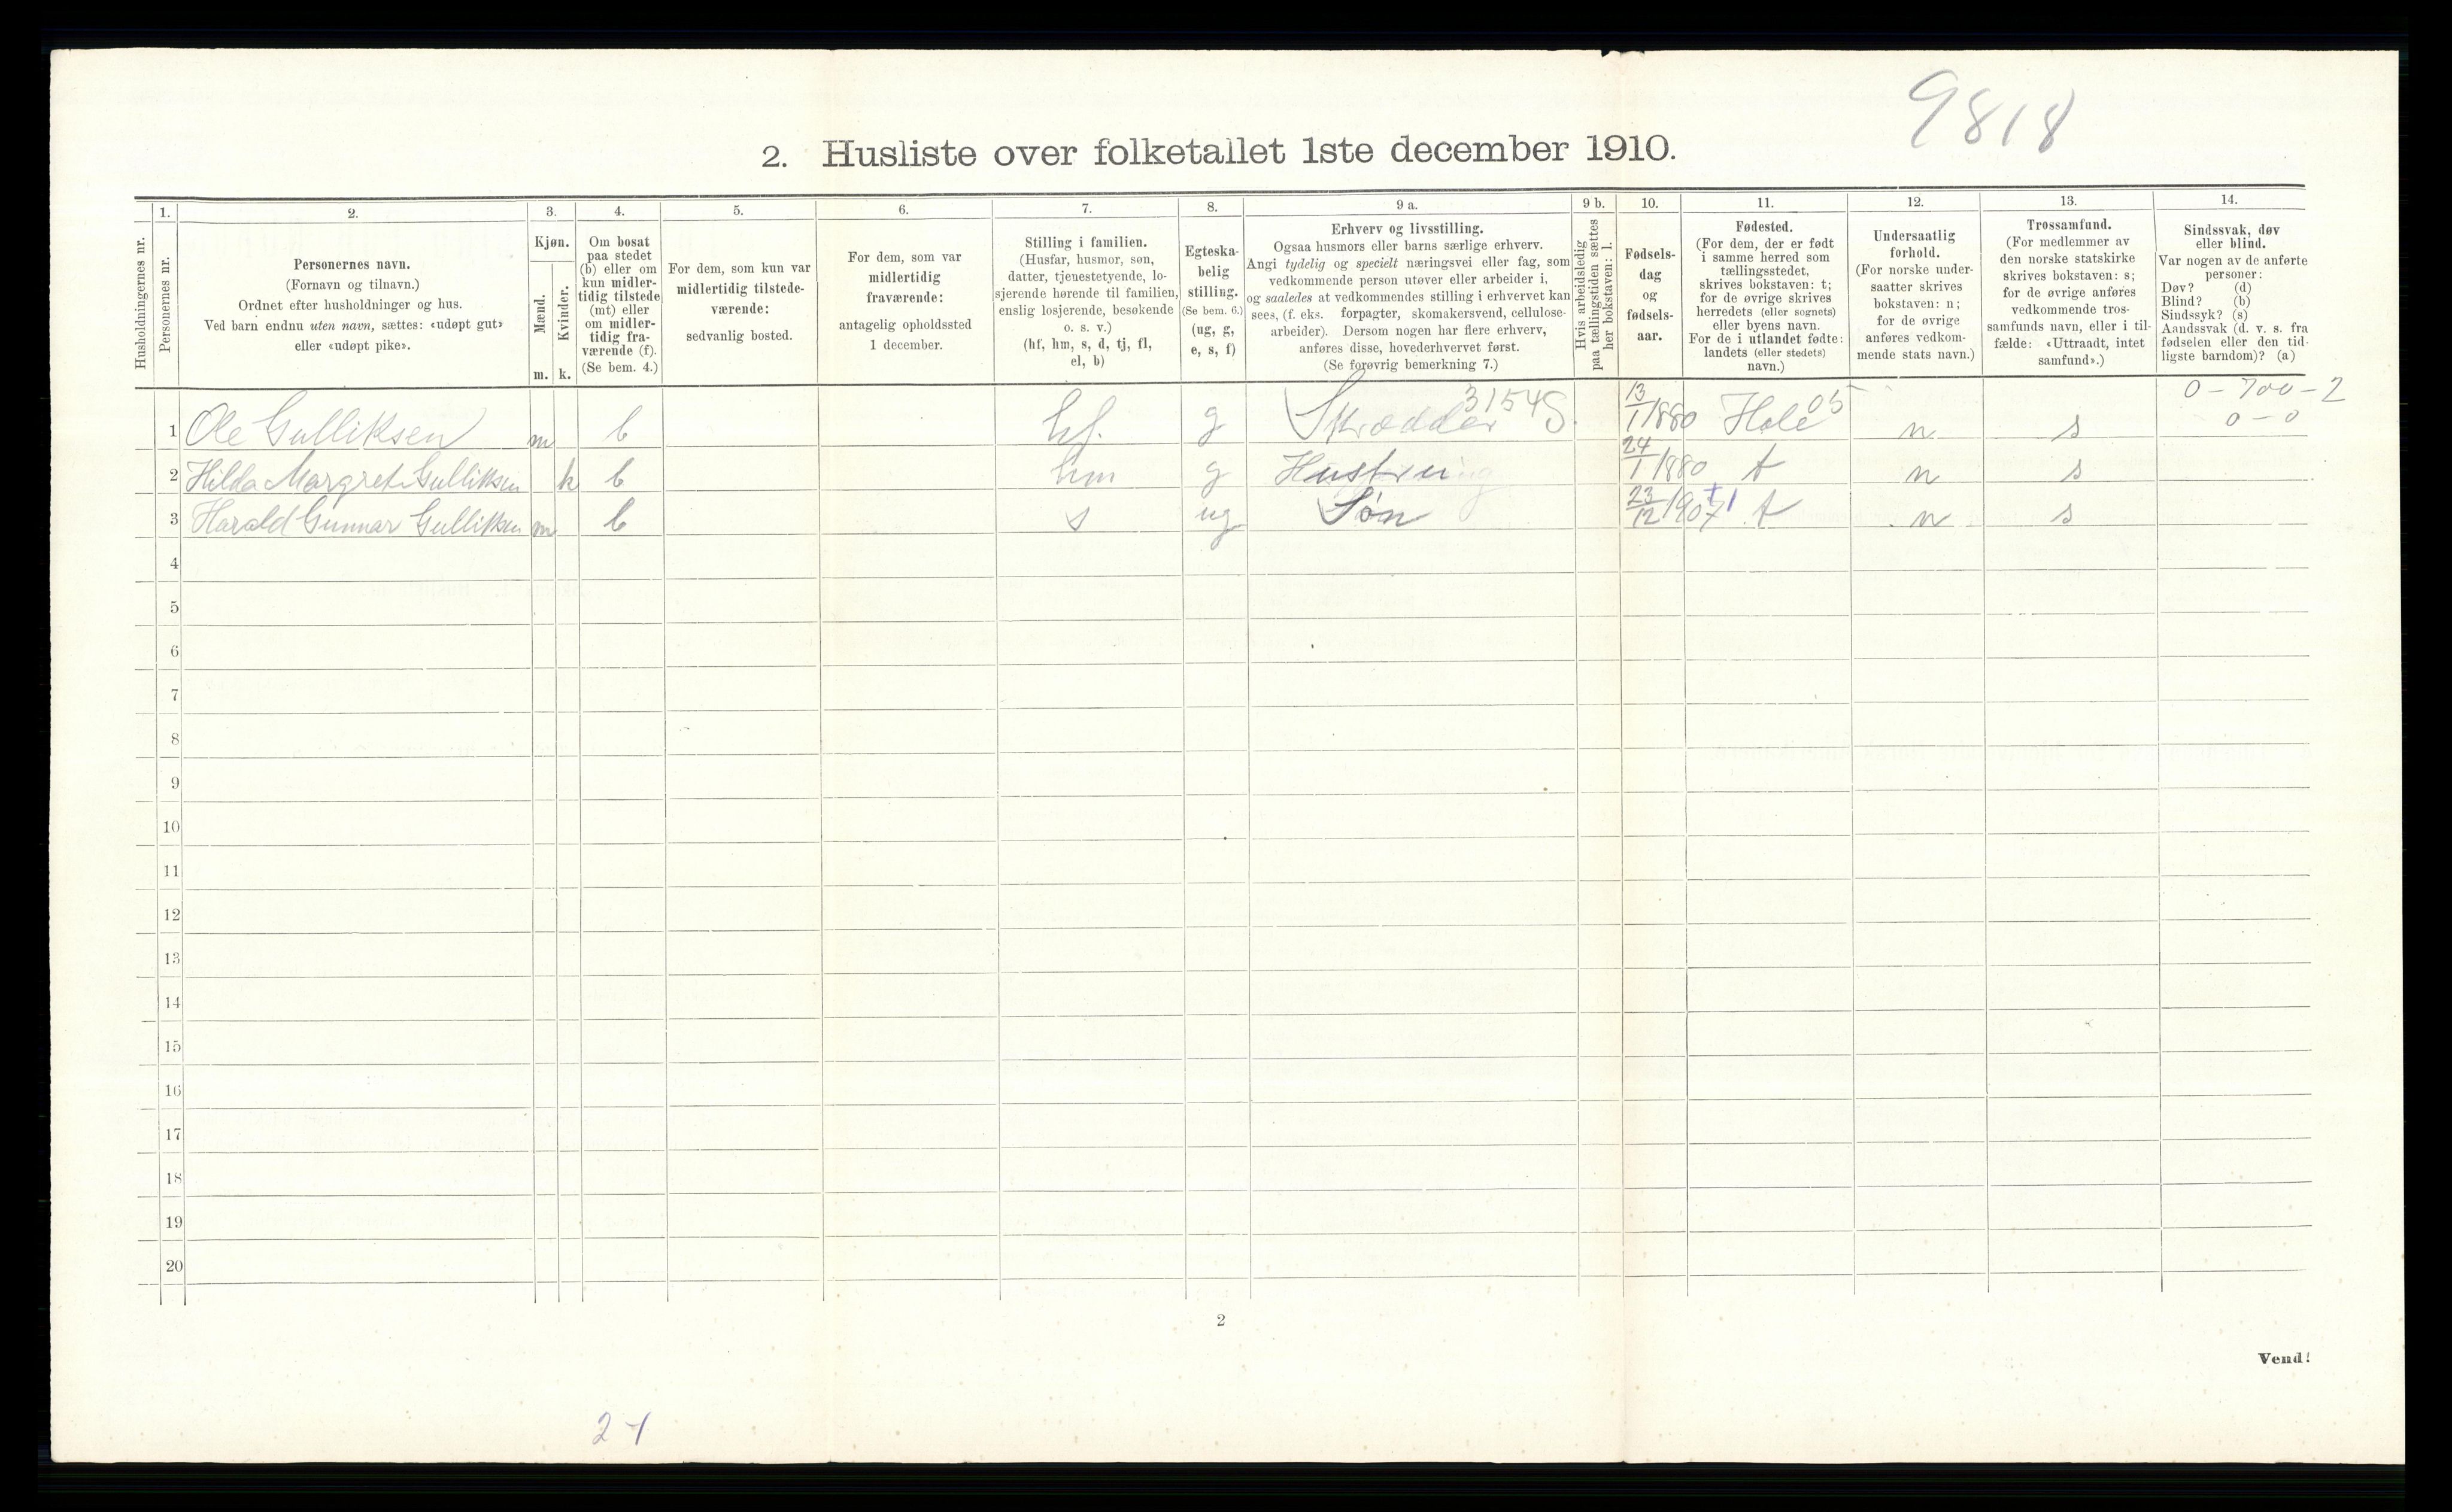 9818
2. Husliste over folketallet 1ste december 1910.
1. 2. 3. 4. 5. 6. 7. 8. 9 a. 9 b. 10. 11. 12. 13. 14.
Husholdningernes nr.
Personernes nr.
Personernes navn.
(Fornavn og tilnavn.)
Ordnet efter husholdninger og hus.
Ved barn endnu uten navn, sættes: «udøpt gut»
eller «udøpt pike».
Kjøn.
Mænd.
Kvinder.
m. k.
Om bosat
paa stedet
(b) eller om
kun midler-
tidig tilstede
(mt) eller
om midler-
tidig fra-
værende (f).
(Se bem. 4.)
For dem, som kun var
midlertidig tilstede-
værende:
sedvanlig bosted.
For dem, som var
midlertidig
fraværende:
antagelig opholdssted
1 december.
Stilling i familien.
(Husfar, husmor, søn,
datter, tjenestetyende, lo-
sjerende hørende til familien,
enslig losjerende, besøkende
o. s. v.)
(hf, hm, s, d, tj, fl,
el, b)
Egteska-
belig
stilling.
(Se bem. 6.)
(ug, g,
e, s, f)
Erhverv og livsstilling.
Ogsaa husmors eller barns særlige erhverv.
Angi tydelig og specielt næringsvei eller fag, som
vedkommende person utøver eller arbeider i,
og saaledes at vedkommendes stilling i erhvervet kan
sees, (f. eks. forpagter, skomakersvend, cellulose-
arbeider). Dersom nogen har flere erhverv,
anføres disse, hovederhvervet først.
(Se forøvrig bemerkning 7.)
Hvis arbeidsledig
paa tællingstiden sættes
her bokstaven: l.
Fødsels-
dag
og
fødsels-
aar.
Fødested.
(For dem, der er født
i samme herred som
tællingsstedet,
skrives bokstaven: t;
for de øvrige skrives
herredets (eller sognets)
eller byens navn.
For de i utlandet fødte:
landets (eller stedets)
navn.)
Undersaatlig
forhold.
(For norske under-
saatter skrives
bokstaven: n;
for de øvrige
anføres vedkom-
mende stats navn.)
Trossamfund.
(For medlemmer av
den norske statskirke
skrives bokstaven: s;
for de øvrige anføres
vedkommende tros-
samfunds navn, eller i til-
fælde: «Uttraadt, intet
samfund».)
Sindssvak, døv
eller blind.
Var nogen av de anførte
personer:
Døv? (d)
Blind? (b)
Sindssyk? (s)
Aandssvak (d. v. s. fra
fødselen eller den tid-
ligste barndom)? (a)
31545 05 0-700-2
1 Ole Gulliksen m b hf. g Skrædder S. 13/1 1880 Hole n s 0-0
2 Hilda Margrete Gulliksen k b hm g Hustru 24/1 1880 t n s
3 Harald Gunnar Gulliksen m b s ug Søn 23/12 1907 t n s
4
5
6
7
8
9
10
11
12
13
14
15
16
17
18
19
20
2
Vend!